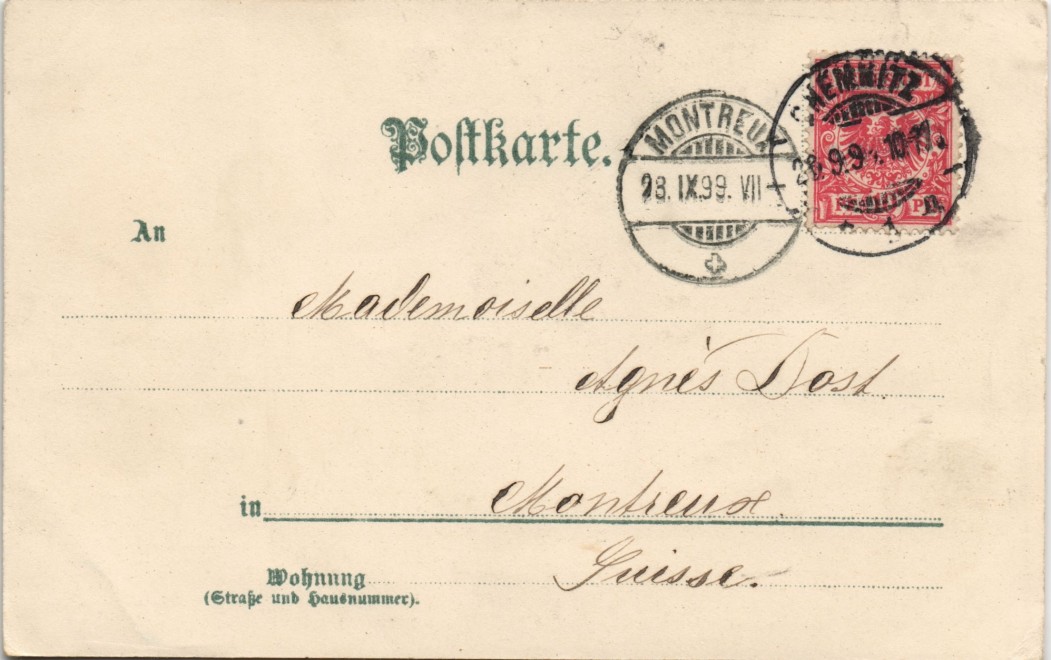 Postkarte.
MONTREUX
28. IX. 99. VII
CHEMNITZ
An
Mademoiselle
Agnès Dost.
in Montreux.
Wohnung Suisse.
(Straße und Hausnummer).